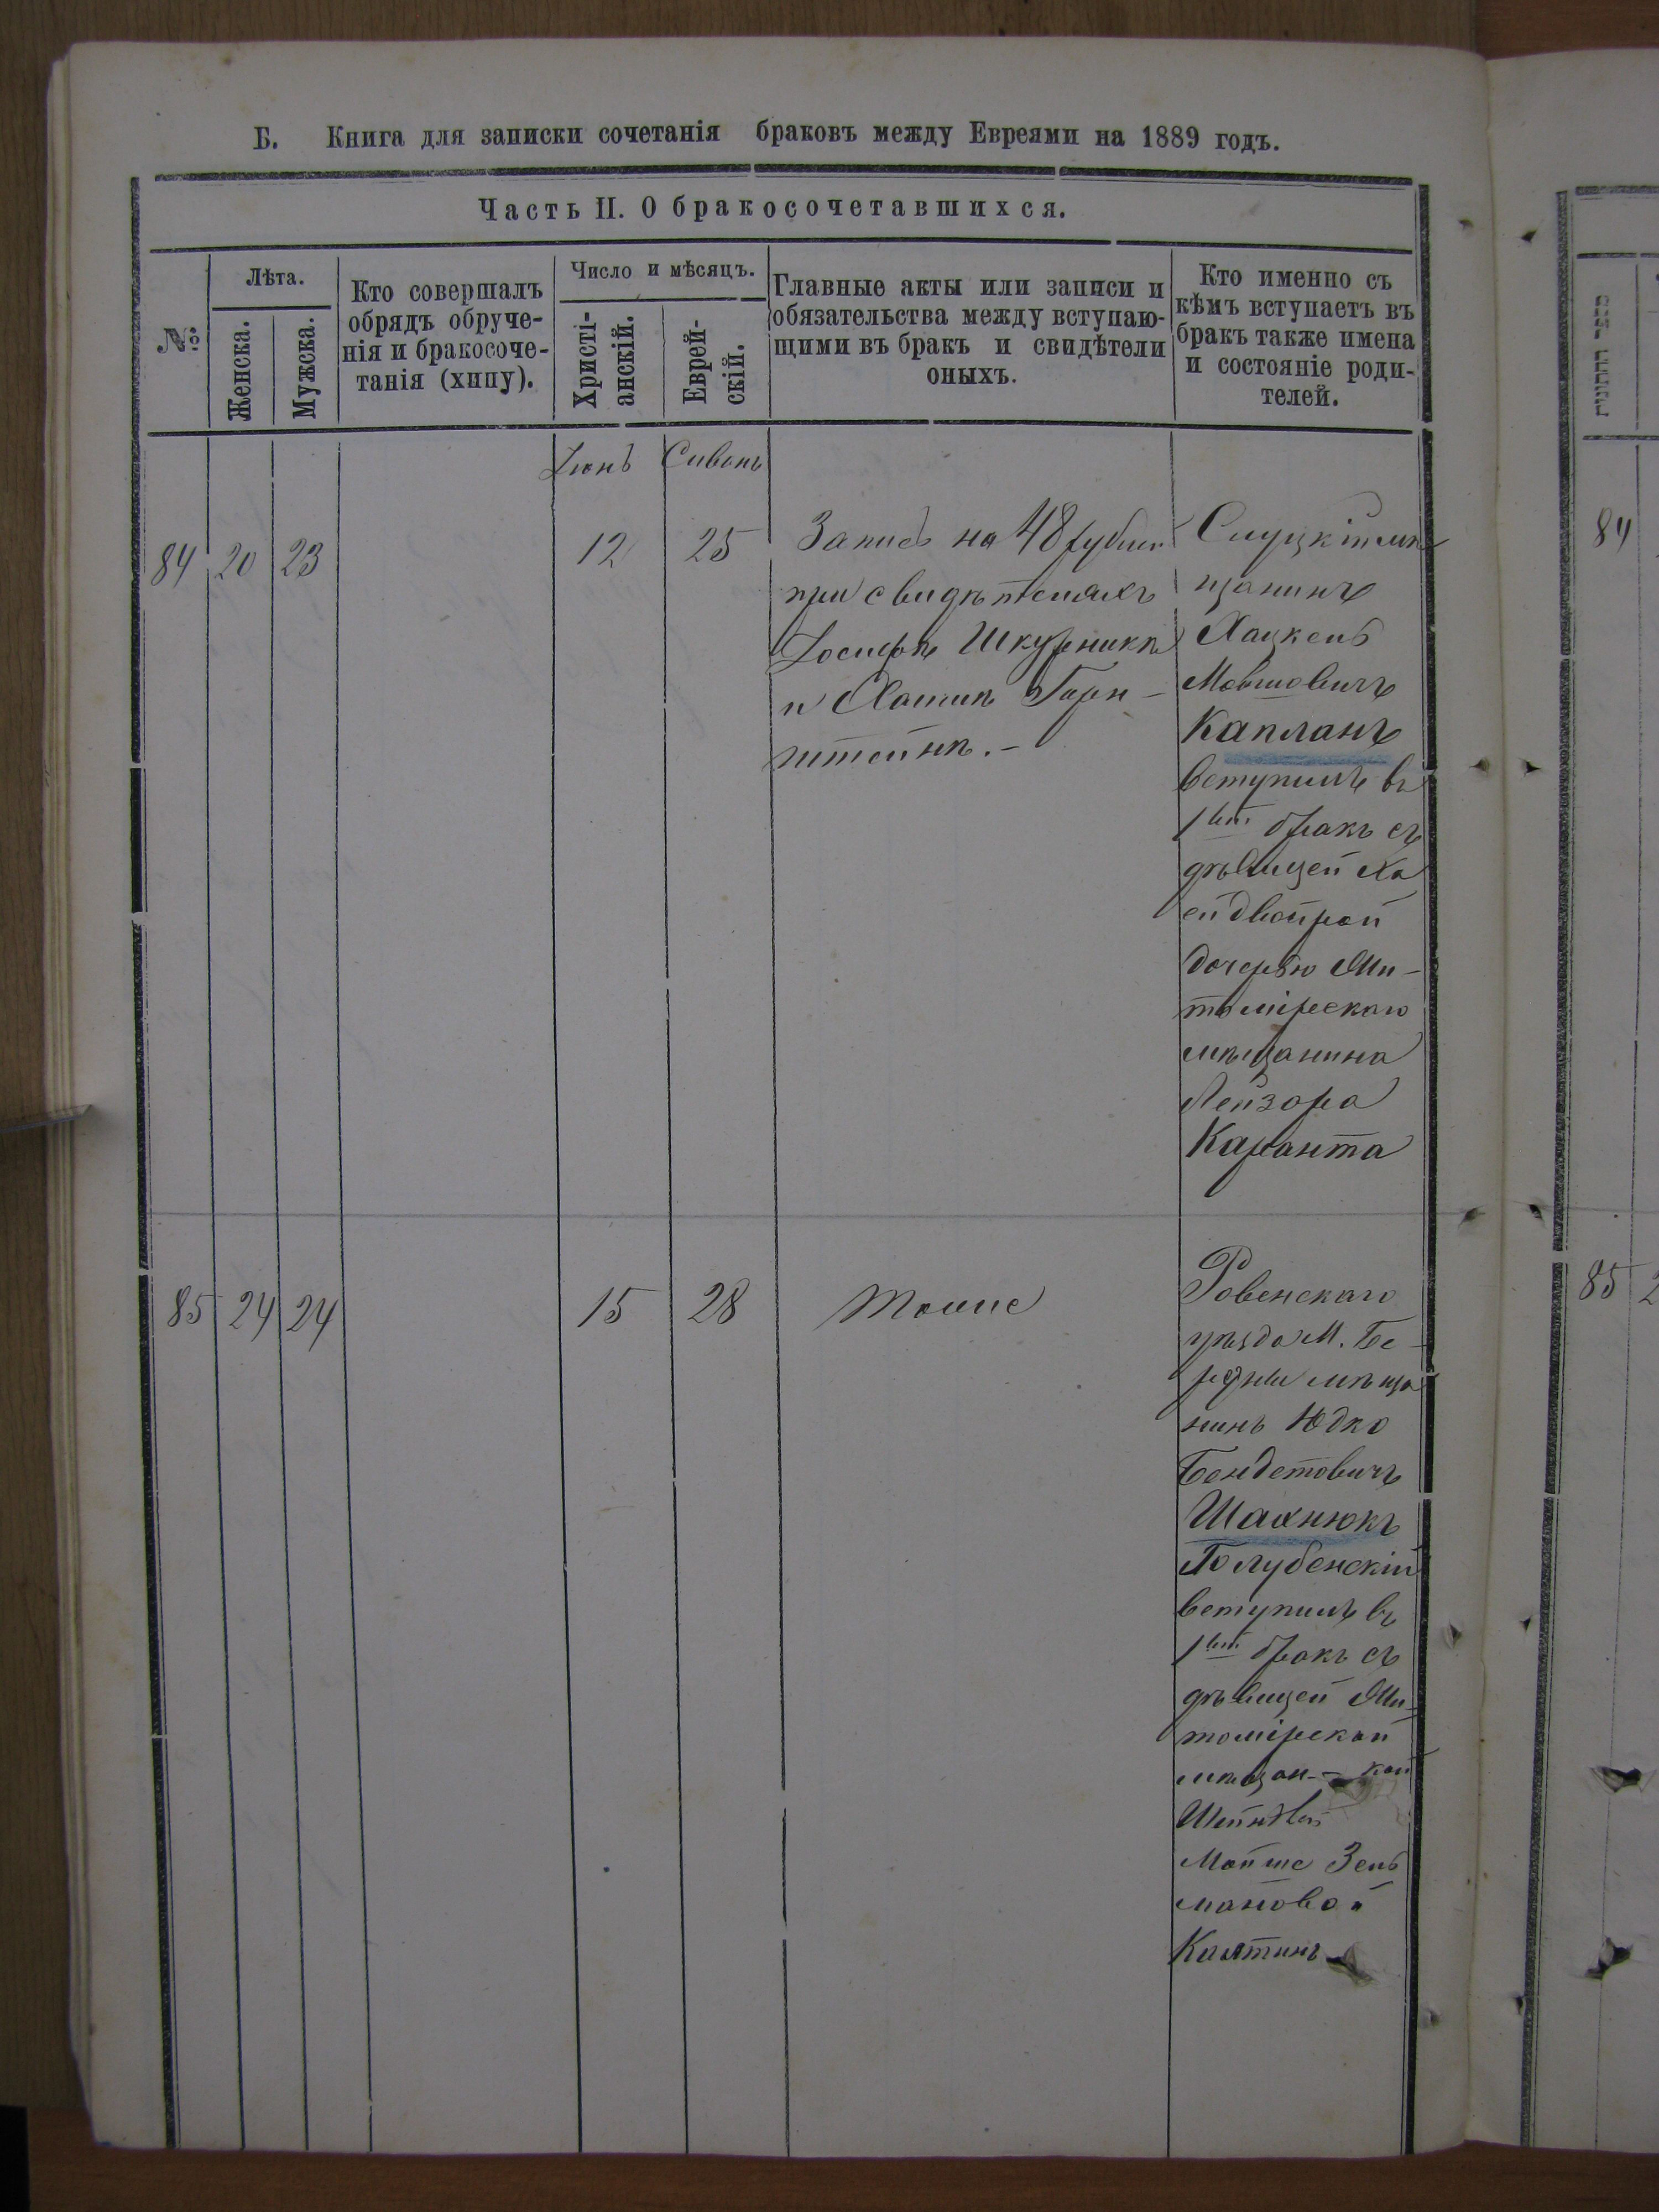 Б. Книга для записки сочетанія браковъ между Евреями на 1889 годъ.
Часть II. О бракосочетавшихся.
№
Лѣта.
Женска.
Мужска.
Кто совершалъ
обрядъ обруче-
нія и бракосоче-
танія (хипу).
Число и мѣсяцъ.
Христі-
анскій.
Еврей-
скій.
Главные акты или записи и
обязательства между вступаю-
щими въ бракъ и свидѣтели
оныхъ.
Кто именно съ
кѣмъ вступаетъ въ
бракъ также имена
и состояніе роди-
телей.
Іюнь Сиванъ
84 20 23 12 25
Запись на 48 рублей
при свидѣтеляхъ
Іосифѣ Шкурникѣ
и Хаимѣ Горн-
штейнѣ.-
Слуцкій мѣ
щанинъ
Хацкель
Мовшовичъ
Капланъ
вступилъ въ
1вый бракъ съ
дѣвицей Ха
ей Двойрой
дочерью Жи-
томірскаго
мѣщанина
Лейзора
Каранта
85 24 24 15 28
Тоже
Ровенскаго
уѣзда М. Бе-
резны мѣща
нинъ Юдко
Бендетовичъ
Шахнюкъ
Голубенскій
вступилъ въ
1вый бракъ съ
дѣвицей Жи-
томірской
мѣщан-кой
Шейндлей
Мойше Зель
мановой
84
85 2